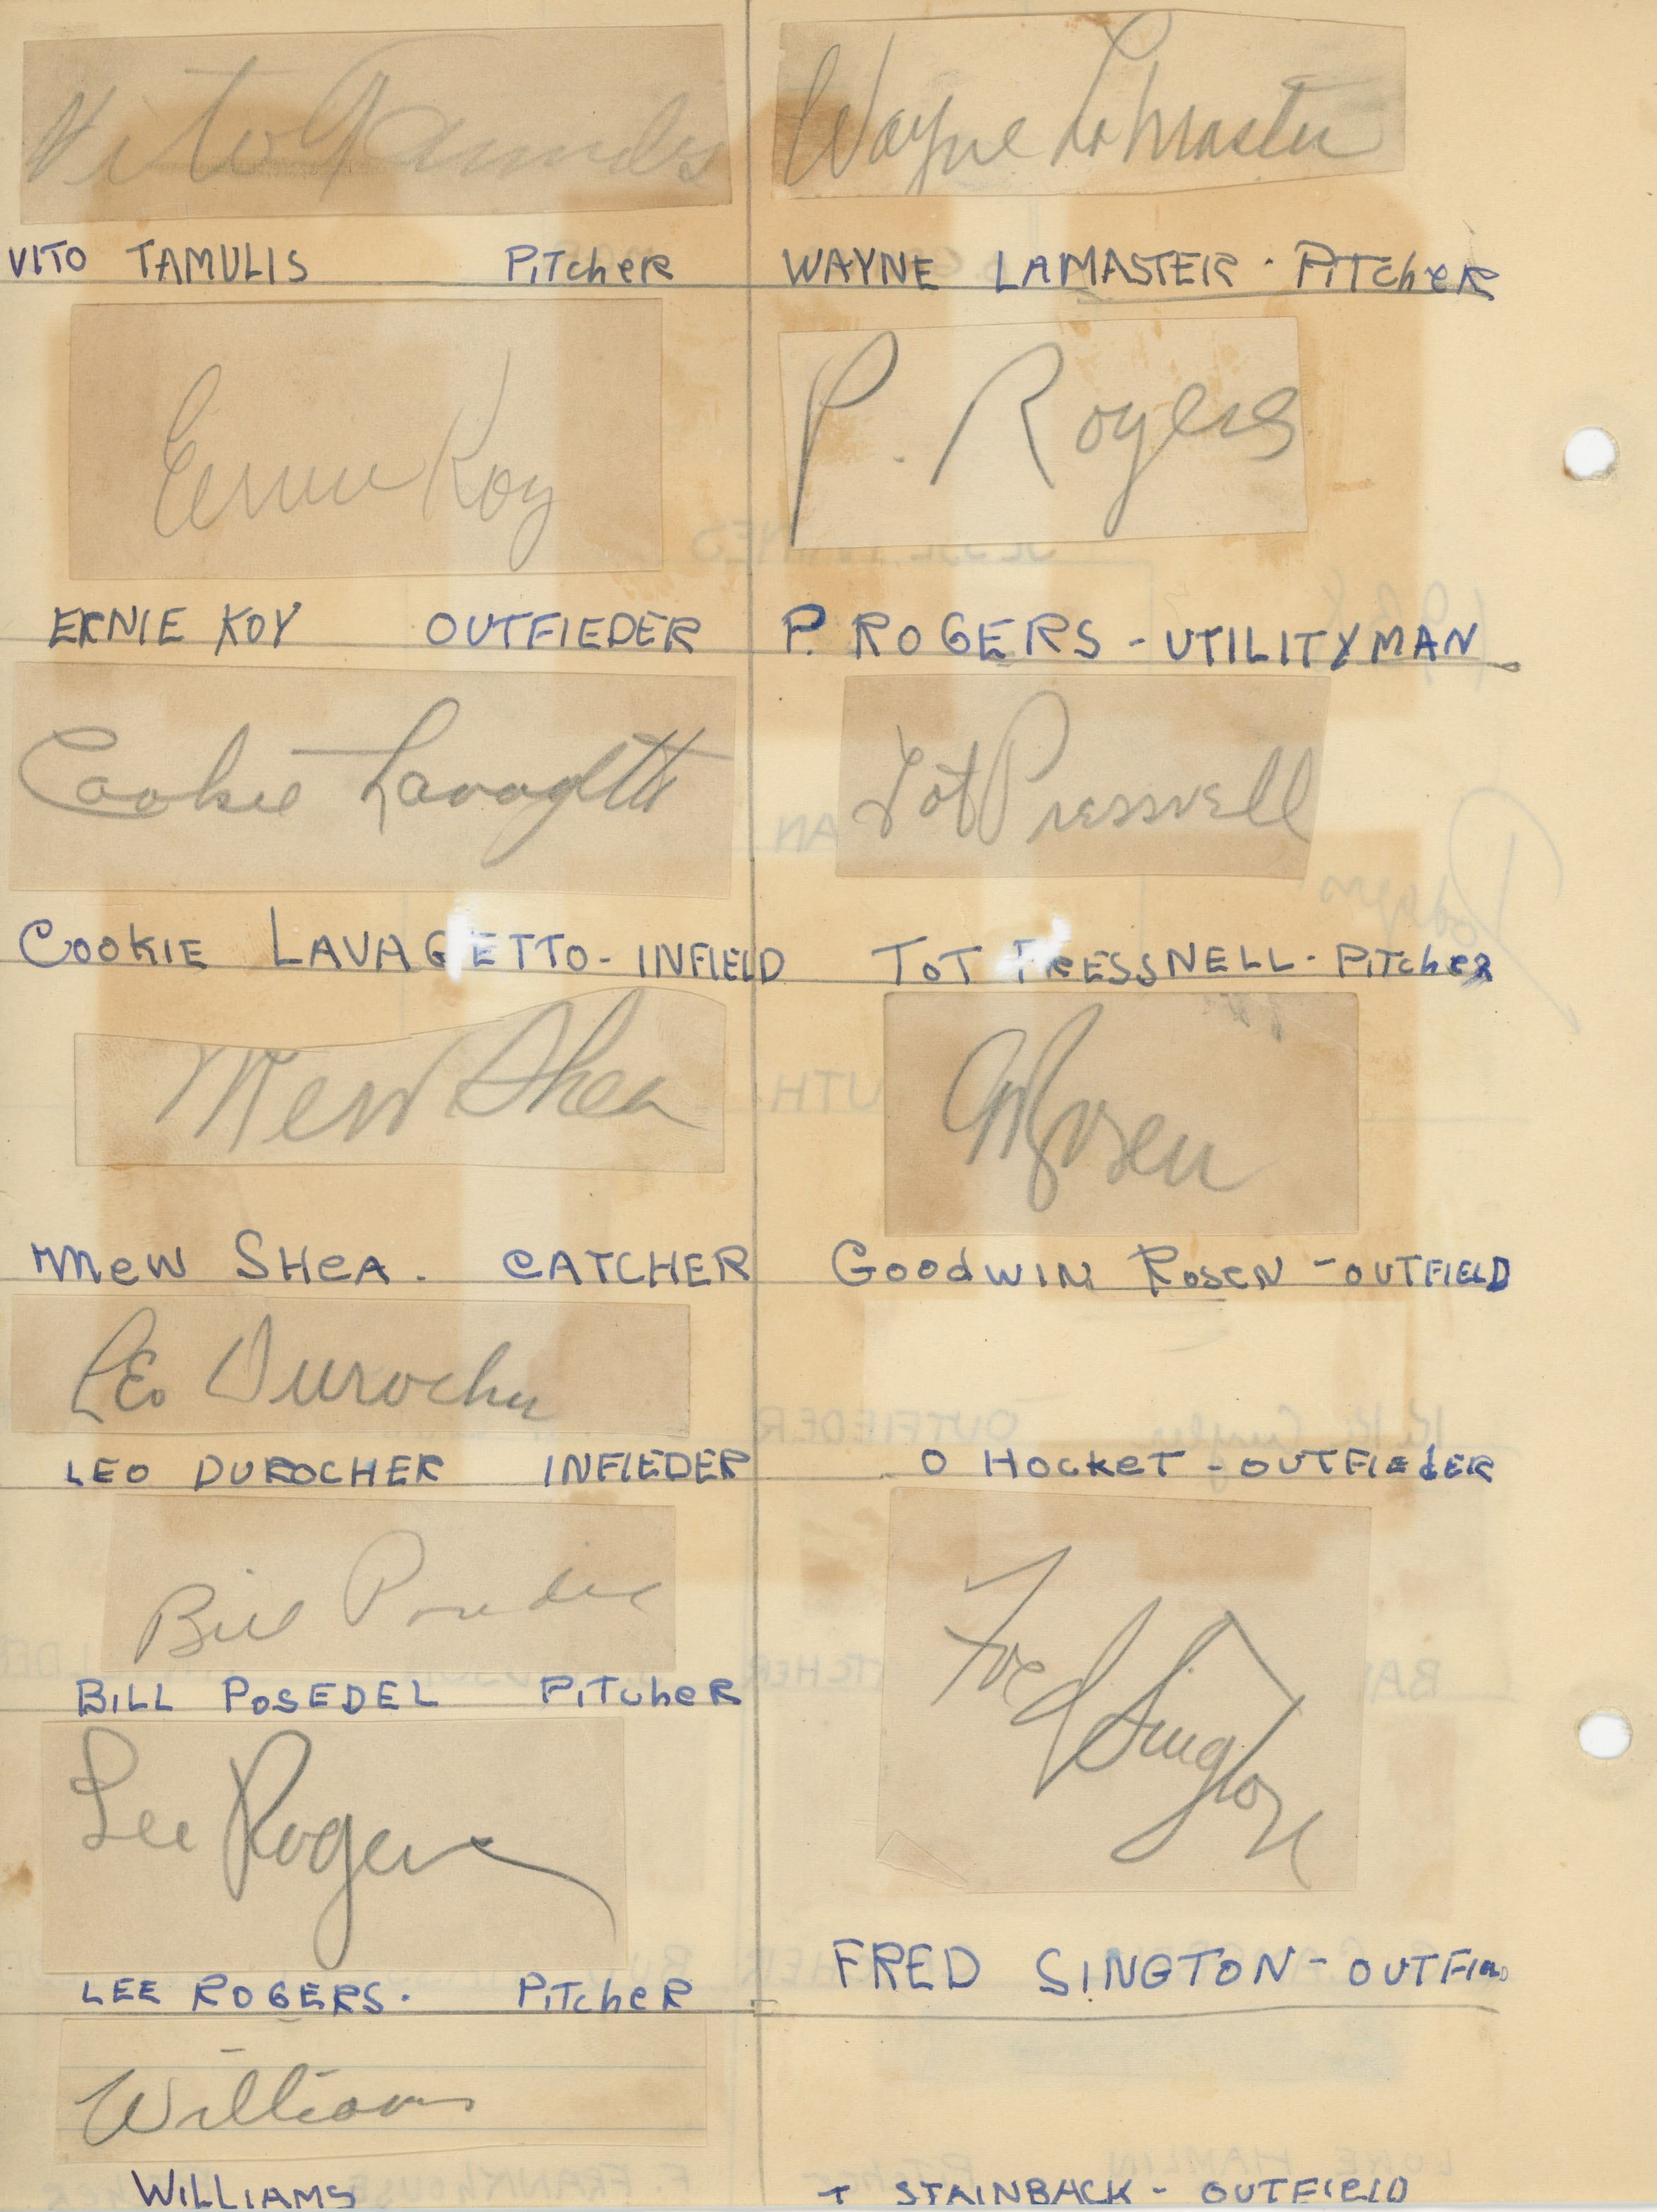 Vito Tamulis
VITO TAMULIS PITcheR
Wayne LaMaster
WAYNE LAMASTER · PITcheR
Ernie Koy
ERNIE KOY OUTFIEDER
P. Rogers
P. ROGERS - UTILITYMAN
Cookie Lavagetto
COOKIE LAVAGETTO - INFIELD
Tot Pressnell
TOT PRESSNELL - PITcheR
Merv Shea
MeW SHeA. CATCHER
G Rosen
GOOdWIN ROSEN - OUTFIELD
Leo Durocher
LEO DUROCHER INFIEDER
O HOCKET - OUTFIEdER
Bill Posedel
BILL POSEDEL PITcheR
Fred Sington
FRED SINGTON - OUTFIELD
Lee Rogers
LEE ROGERS. PITcheR
Williams
WILLIAMS
T STAINBACK - OUTFIELD